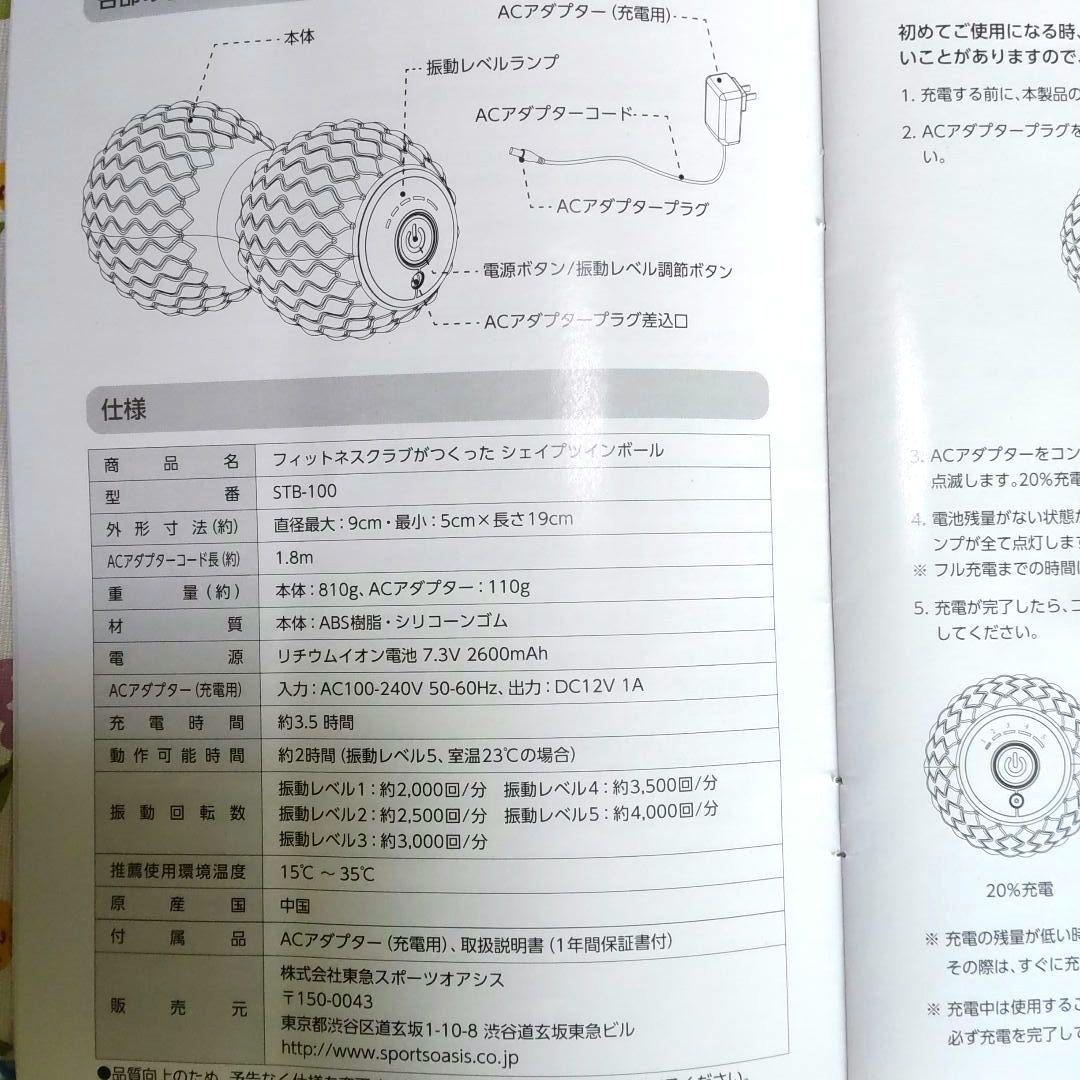 本体
ACアダプター（充電用）
振動レベルランプ
ACアダプターコード
ACアダプタープラグ
電源ボタン/振動レベル調節ボタン
ACアダプタープラグ差込口
仕様
商品名 フィットネスクラブがつくった シェイプツインボール
型番 STB-100
外形寸法(約) 直径最大：9cm・最小：5cm×長さ19cm
ACアダプターコード長(約) 1.8m
重量(約) 本体：810g、ACアダプター：110g
材質 本体：ABS樹脂・シリコーンゴム
電源 リチウムイオン電池 7.3V 2600mAh
ACアダプター（充電用） 入力：AC100-240V 50-60Hz、出力：DC12V 1A
充電時間 約3.5 時間
動作可能時間 約2時間（振動レベル5、室温23℃の場合）
振動回転数 振動レベル1：約2,000回/分 振動レベル4：約3,500回/分
振動レベル2：約2,500回/分 振動レベル5：約4,000回/分
振動レベル3：約3,000回/分
推薦使用環境温度 15℃ ～ 35℃
原産国 中国
付属品 ACアダプター（充電用）、取扱説明書（1年間保証書付）
販売元 株式会社東急スポーツオアシス
〒150-0043
東京都渋谷区道玄坂1-10-8 渋谷道玄坂東急ビル
http://www.sportsoasis.co.jp
●品質向上のため、予告なく仕様を変更
ください。
初めてご使用になる時、
いことがありますので、
1. 充電する前に、本製品の
2. ACアダプタープラグを
い。
3. ACアダプターをコン
点滅します。20%充電
4. 電池残量がない状態
ンプが全て点灯します
※ フル充電までの時間は
5. 充電が完了したら、コ
してください。
20%充電
※ 充電の残量が低い時
その際は、すぐに充
※ 充電中は使用するこ
必ず充電を完了して